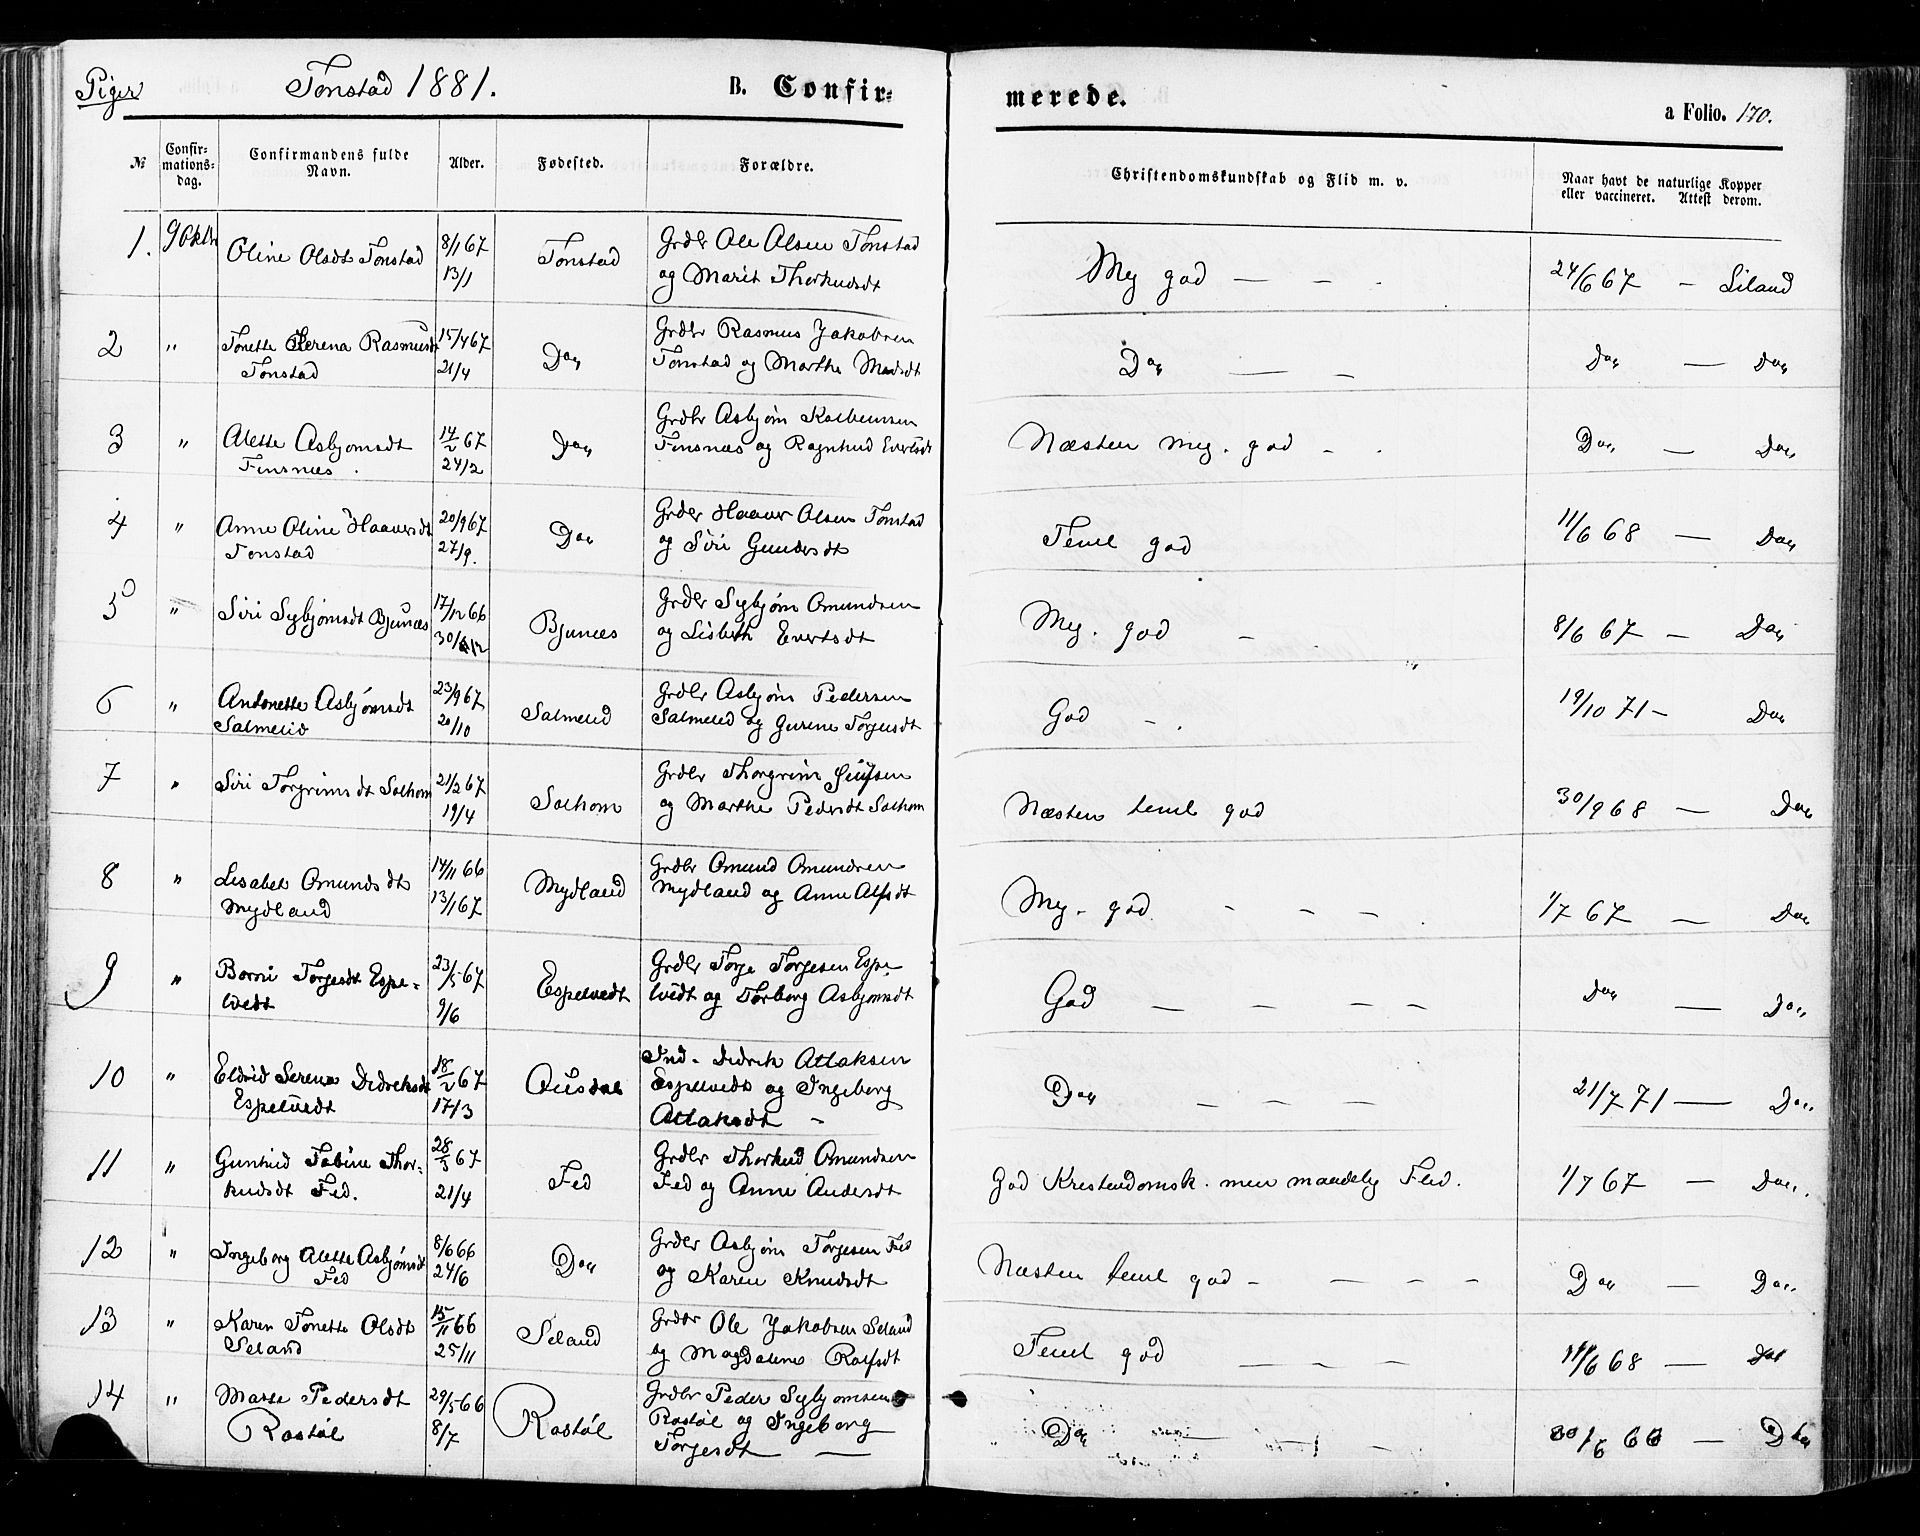 Piger Tonstad 1881. B. Confirmerede. a Folio. 170.
№ Confirmationsdag. Confirmandens fulde Navn. Alder. Fødested. Forældre. Christendomskundskab og Flid m. v. Naar havt de naturlige Kopper eller vaccineret. Attest derom.
1. 9 Oktb Oline Olsdt Tonstad 8/1 67 13/1 Tonstad Grdbr Ole Olsen Tonstad
og Marit Thorkildsdt Mg god — - . 24/6 67 — Liland
2 " Tonette Serena Rasmusdt 15/4 67 Do Grdbr Rasmus Jakobsen
Tonstad 21/4 Tonstad og Marthe Madsdt Do — - Do — Do
3 " Alette Asbjørnsdt 14/2 67 Do Grdbr Asbjørn Kolbensen
Finsnæs . 24/2 Finsnæs og Ragnhild Evertsdt Næsten mg. god - . Do — Do
4 " Anne Oline Haaversdt 20/9 67 Do Grdbr Haaver Olsen Tonstad
Tonstad 27/9. og Siri Gundersdt Teml god 11/6 68 — Do
5 " Siri Sybjørnsdt Bjunæs 17/12 66 Bjunæs Grdbr Sybjørn Omundsen
30/12 og Lisbeth Evertsdt Mg. god - 8/6 67 — Do
6 " Antonette Asbjørnsdt 23/9 67 Salmelid Grdbr Asbjørn Pedersen
Salmelid 20/10 Salmelid og Gurine Torjusdt God - . 19/10 71 - Do
7 " Siri Torgrimsdt Solhom 21/2 67 Solhom Grdbr Thorgrim
19/4 og Marthe Pedersdt Solhom Næsten teml god 30/9 68 — Do
8 " Lisabet Omundsdt 14/11 66 Mydland Grdbr Omund Omundsen
Mydland 13/1 67 Mydland og Anne Alfsdt Mg. god. - - - 1/7 67 — Do
9 " Borni Torjesdt Espe- 23/5 67 Espelvedt Grdbr Torje Torjesen Espe-
lvedt 9/6 lvedt og Torborg Asbjørnsdt God — — — - Do — Do
10 " Eldrid Serena Didreksdt 18/2 67 Ousdal Ind. Didrik Atlaksen
Espelvedt 17/3 Espelvedt og Ingeborg
Atlaksdt - Do - — — 21/7 71 — Do
11 " Gunhild Tobine Thor- 28/3 67 Fed Grdbr Thorkild Omundsen
kildsdt Fed. 21/4 Fed og Anne Andersdt God Kristendomsk. men maadelig Flid. 1/7 67 — Do.
12 " Ingeborg Alette Asbjørnsdt 8/6 66 Do Grdbr Asbjørn Torjesen Fed
Fed 24/6 og Karen Knudsdt Næsten teml god - — - - Do — Do
13 " Karen Tonette Olsdt 15/11 66 Seland Grdbr Ole Jakobsen Seland
Seland 25/11 og Magdalene Rolfsdt Teml god — — - 11/6 68 — Do
14 " Marte Pedersdt 29/5 66 Rostøl Grdbr Peder Sybjørnsen
Rostøl 8/7 Rostøl og Ingeborg
Torjesdt — Do - 30/6 66 — Do